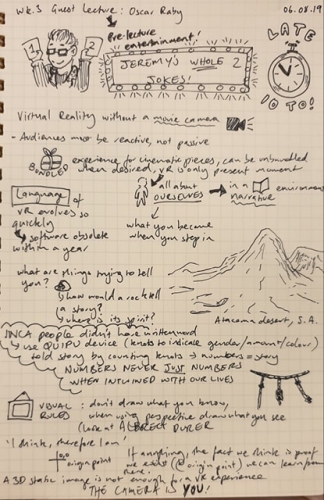 Wk.3 Guest Lecture: Oscar Raby
06.08.19
Pre-lecture
entertainment!
1
2
JEREMY'S WHOLE 2
JOKES!
LATE
10 TO!
Virtual Reality without a movie camera
- Audiences must be reactive, not passive
BUNDLED
experience for cinematic pieces, can be unbundled
when desired, VR is only present moment
Language of
VR evolves so
quickly
software obsolete
within a year
all about
OURSELVES
in a
environment
narrative
what you become
when you step in
what are things trying to tell
you?
how would a rock tell
a story?
where is its spirit?
Atacama desert, S.A.
INCA people didn't have written word
use QUIPU device (knots to indicate gender/amount/colour)
told story by counting knots → numbers = story
NUMBERS NEVER JUST NUMBERS
WHEN INTWINED WITH OUR LIVES
VISUAL
RULES
: don't draw what you know,
when using perspective draw what you see
(look at ALBRECT DURER
'I think, therefore I am'
0,0
origin point
If anything, the fact we think is proof
we exist (@ origin point) we can learn from
here.
A 3D static image is not enough for a VR experience
THE CAMERA IS YOU!